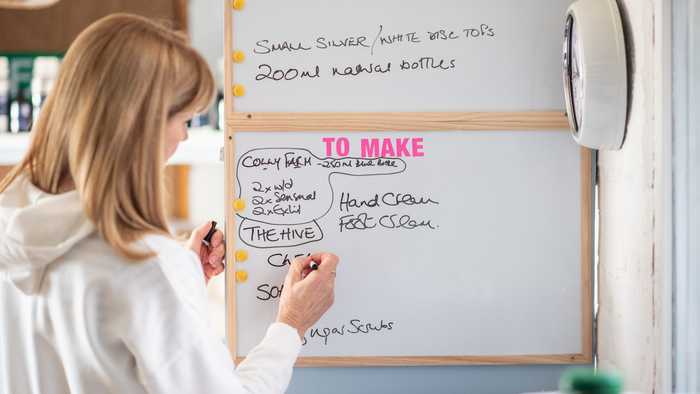 SMALL SILVER / WHITE DISC TOPS
200ml natural bottles
TO MAKE
COLLY FARM - 250ml Blue Bottle
2x w/d
2x Sensual
2x Exklid
THE HIVE
Hand Cream
Foot Cream.
Sugar Scrubs